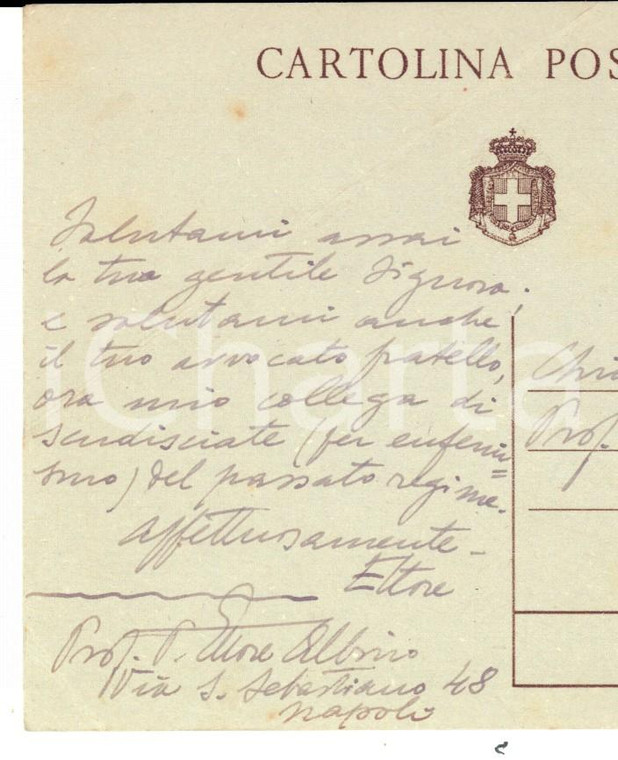 CARTOLINA POS
Salutami assai
la tua gentile Signora.
e salutami anche
il tuo avvocato fratello,
ora mio collega di
scudisciate (per eufemi=
smo) del passato regime.
Affettuosamente -
Ettore
Prof. P. Ettore Albino
Via S. Sebastiano 48
Napoli
Chi
Prof.
iCharta